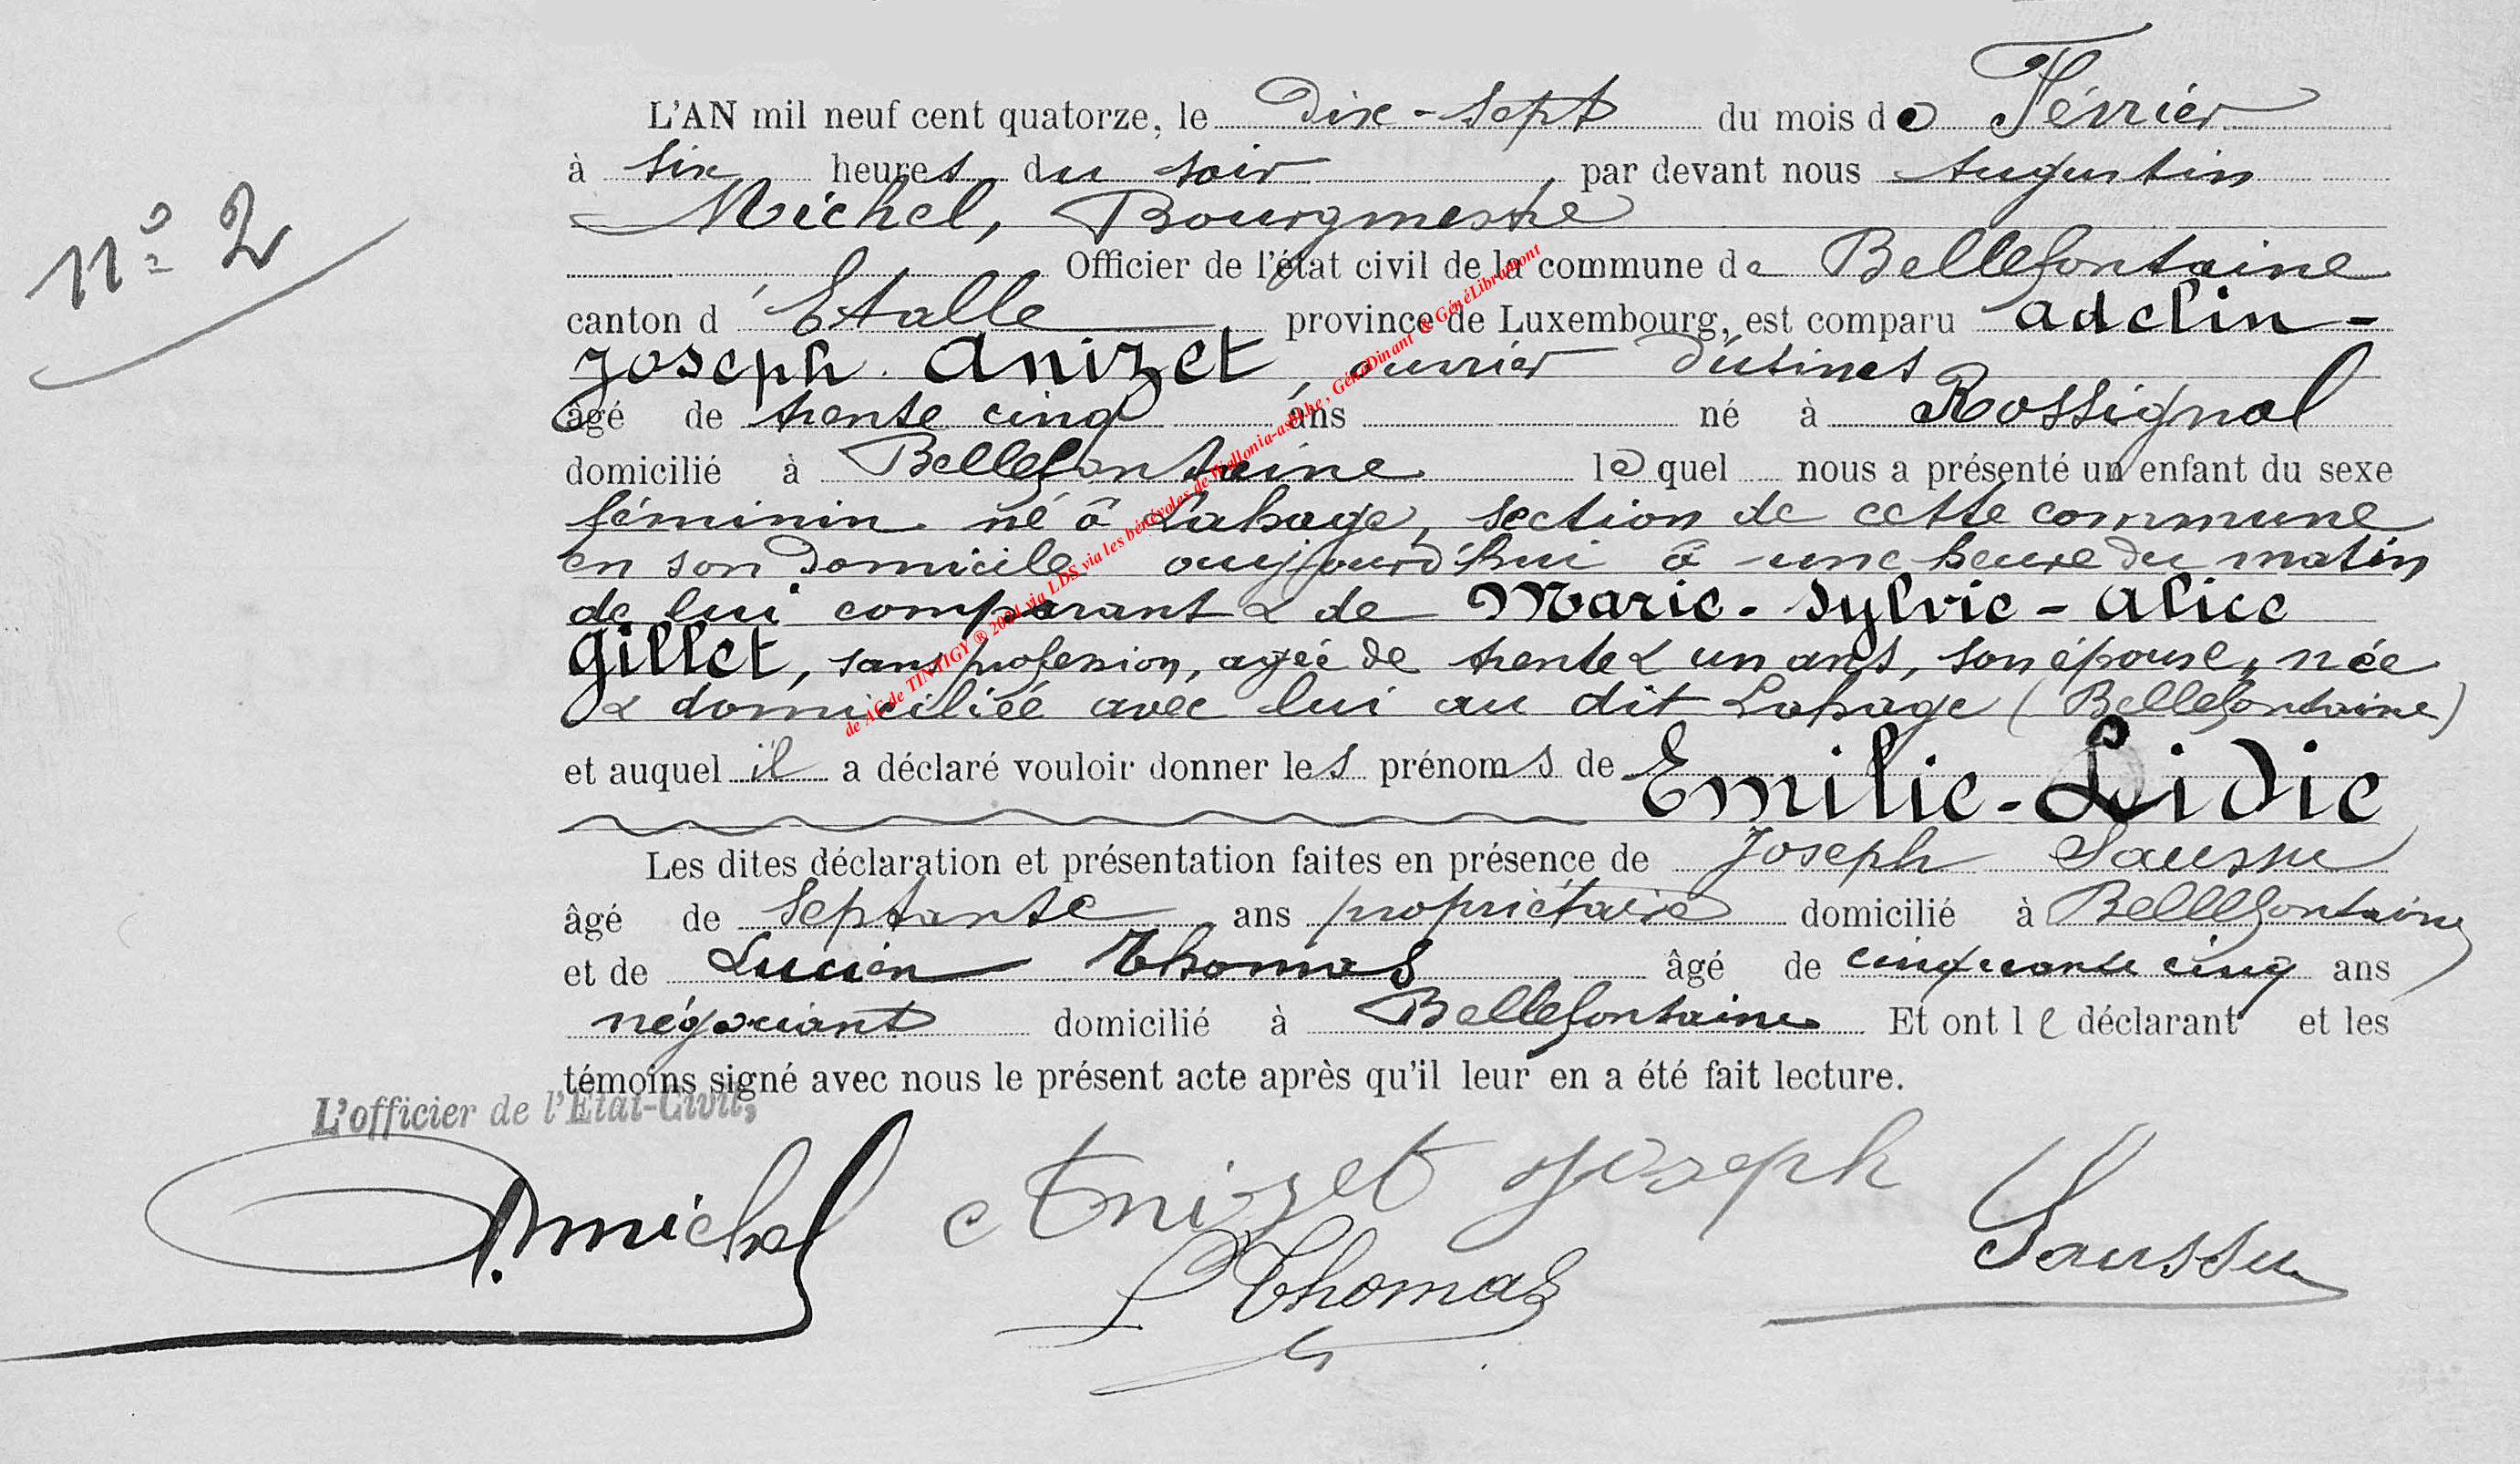 L'AN mil neuf cent quatorze, le Dix-sept du mois de Février
à six heures du soir, par devant nous Augustin
N° 2
Michel, Bourgmestre
Officier de l'état civil de la commune de Bellefontaine
canton d'Etalle province de Luxembourg, est comparu Adelin-
Joseph Anizet, ouvrier d'usines
âgé de trente cinq ans né à Rossignol
domicilié à Bellefontaine lequel nous a présenté un enfant du sexe
féminin né à Lahage, section de cette commune
en son domicile aujourd'hui à une heure du matin
de lui comparant & de Marie-Sylvie-Alice
Gillet, sans profession, agée de trente & un ans, son épouse, née
& domiciliée avec lui au dit Lahage (Bellefontaine)
et auquel il a déclaré vouloir donner les prénoms de Emilie-Lidie
Les dites déclaration et présentation faites en présence de Joseph Saussu
âgé de septante ans propriétaire domicilié à Bellefontaine
et de Lucien Thomas âgé de cinquante cinq ans
négociant domicilié à Bellefontaine Et ont le déclarant et les
témoins signé avec nous le présent acte après qu'il leur en a été fait lecture.
L'officier de l'Etat-Civil,
A. Michel Anizet Joseph Saussu
L Thomas
de AC de TINTIGY ® 2021 via LDS via les bénévoles de Wallonia-asbl.be, GénéDinant & GénéLibramont